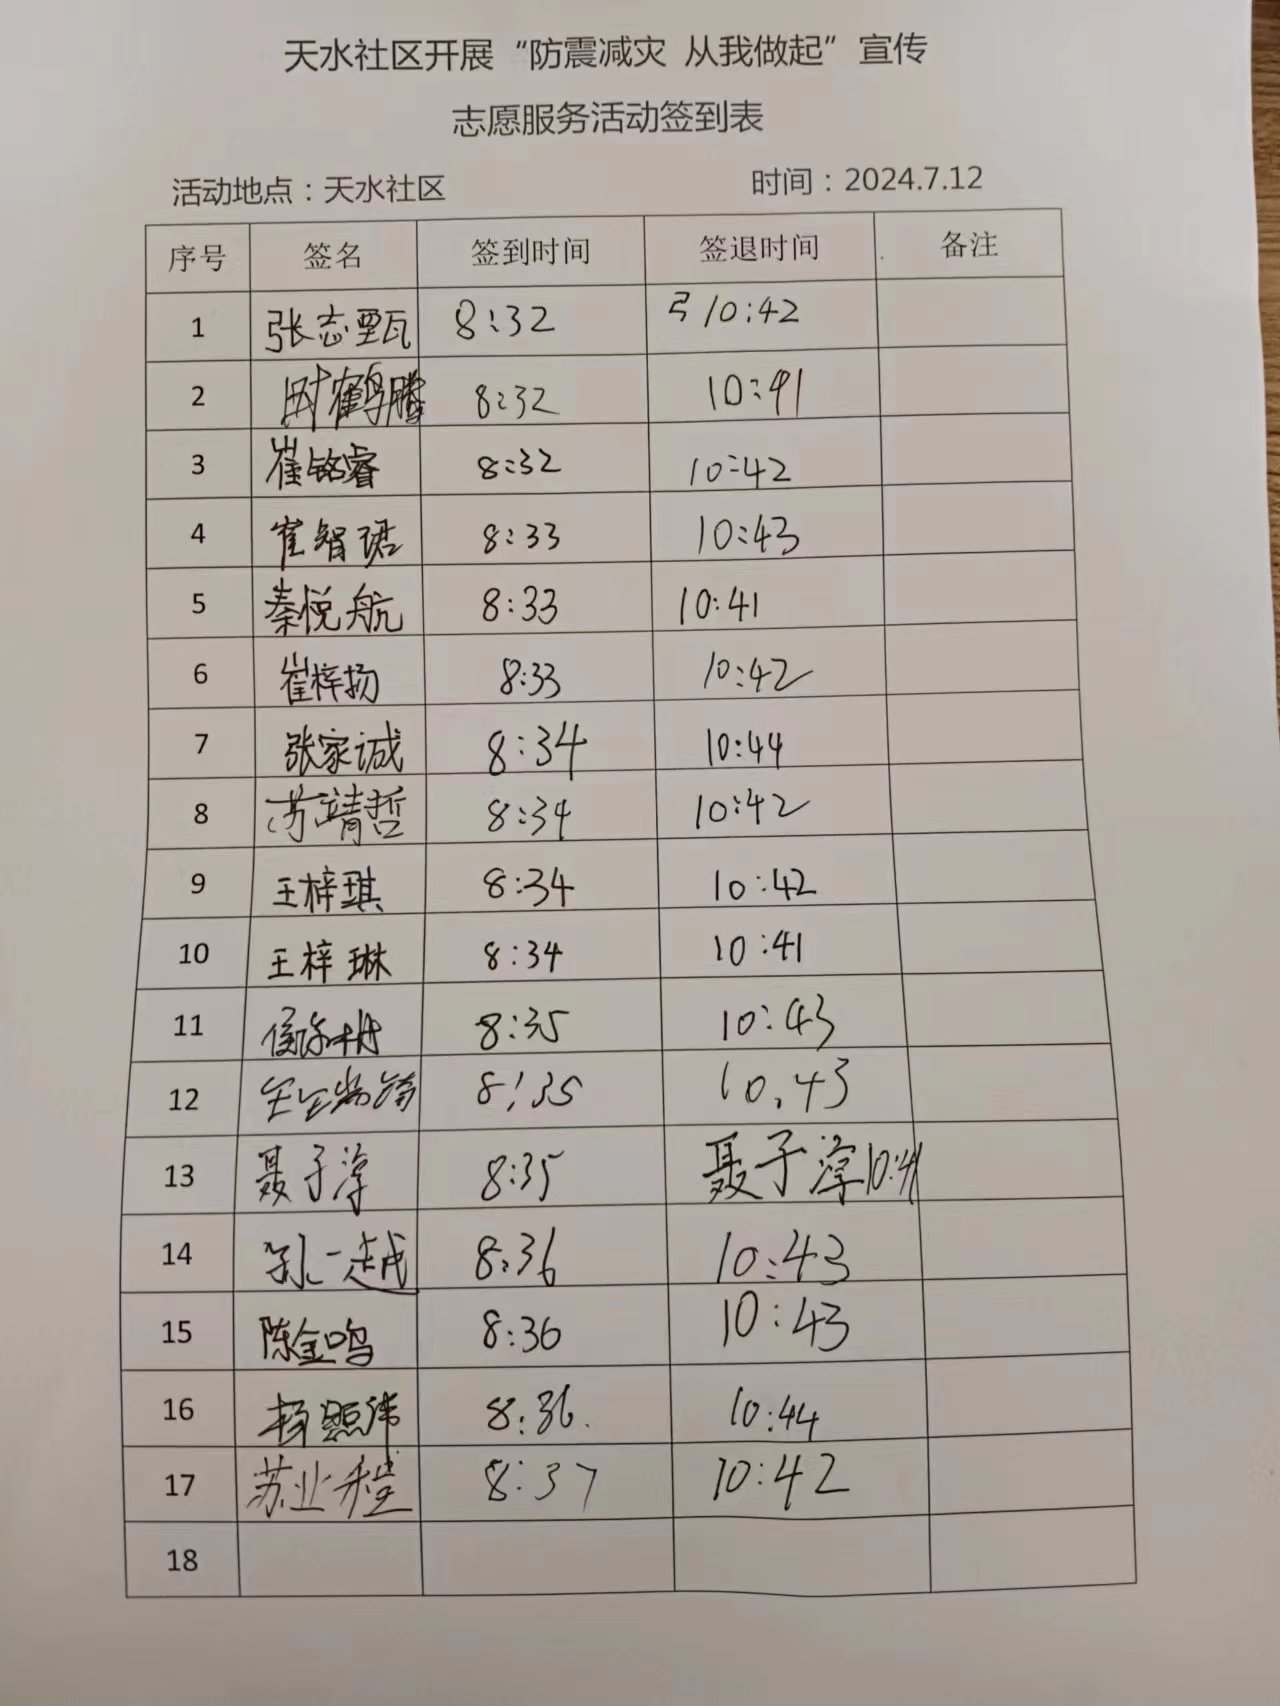 天水社区开展“防震减灾 从我做起”宣传
志愿服务活动签到表
活动地点：天水社区 时间：2024.7.12
序号 签名 签到时间 签退时间 备注
1 张志甄 8:32 弓10:42
2 鹤腾 8:32 10:41
3 崔铭睿 8:32 10:42
4 崔智珺 8:33 10:43
5 秦悦航 8:33 10:41
6 崔梓扬 8:33 10:42
7 张家诚 8:34 10:44
8 苏靖哲 8:34 10:42
9 王梓琪 8:34 10:42
10 王梓琳 8:34 10:41
11 8:35 10:43
12 8:35 10.43
13 聂子淳 8:35 聂子淳10:41
14 孙一越 8:36 10:43
15 陈金鸣 8:36 10:43
16 杨照沛 8:36. 10:44
17 苏业 8:37 10:42
18